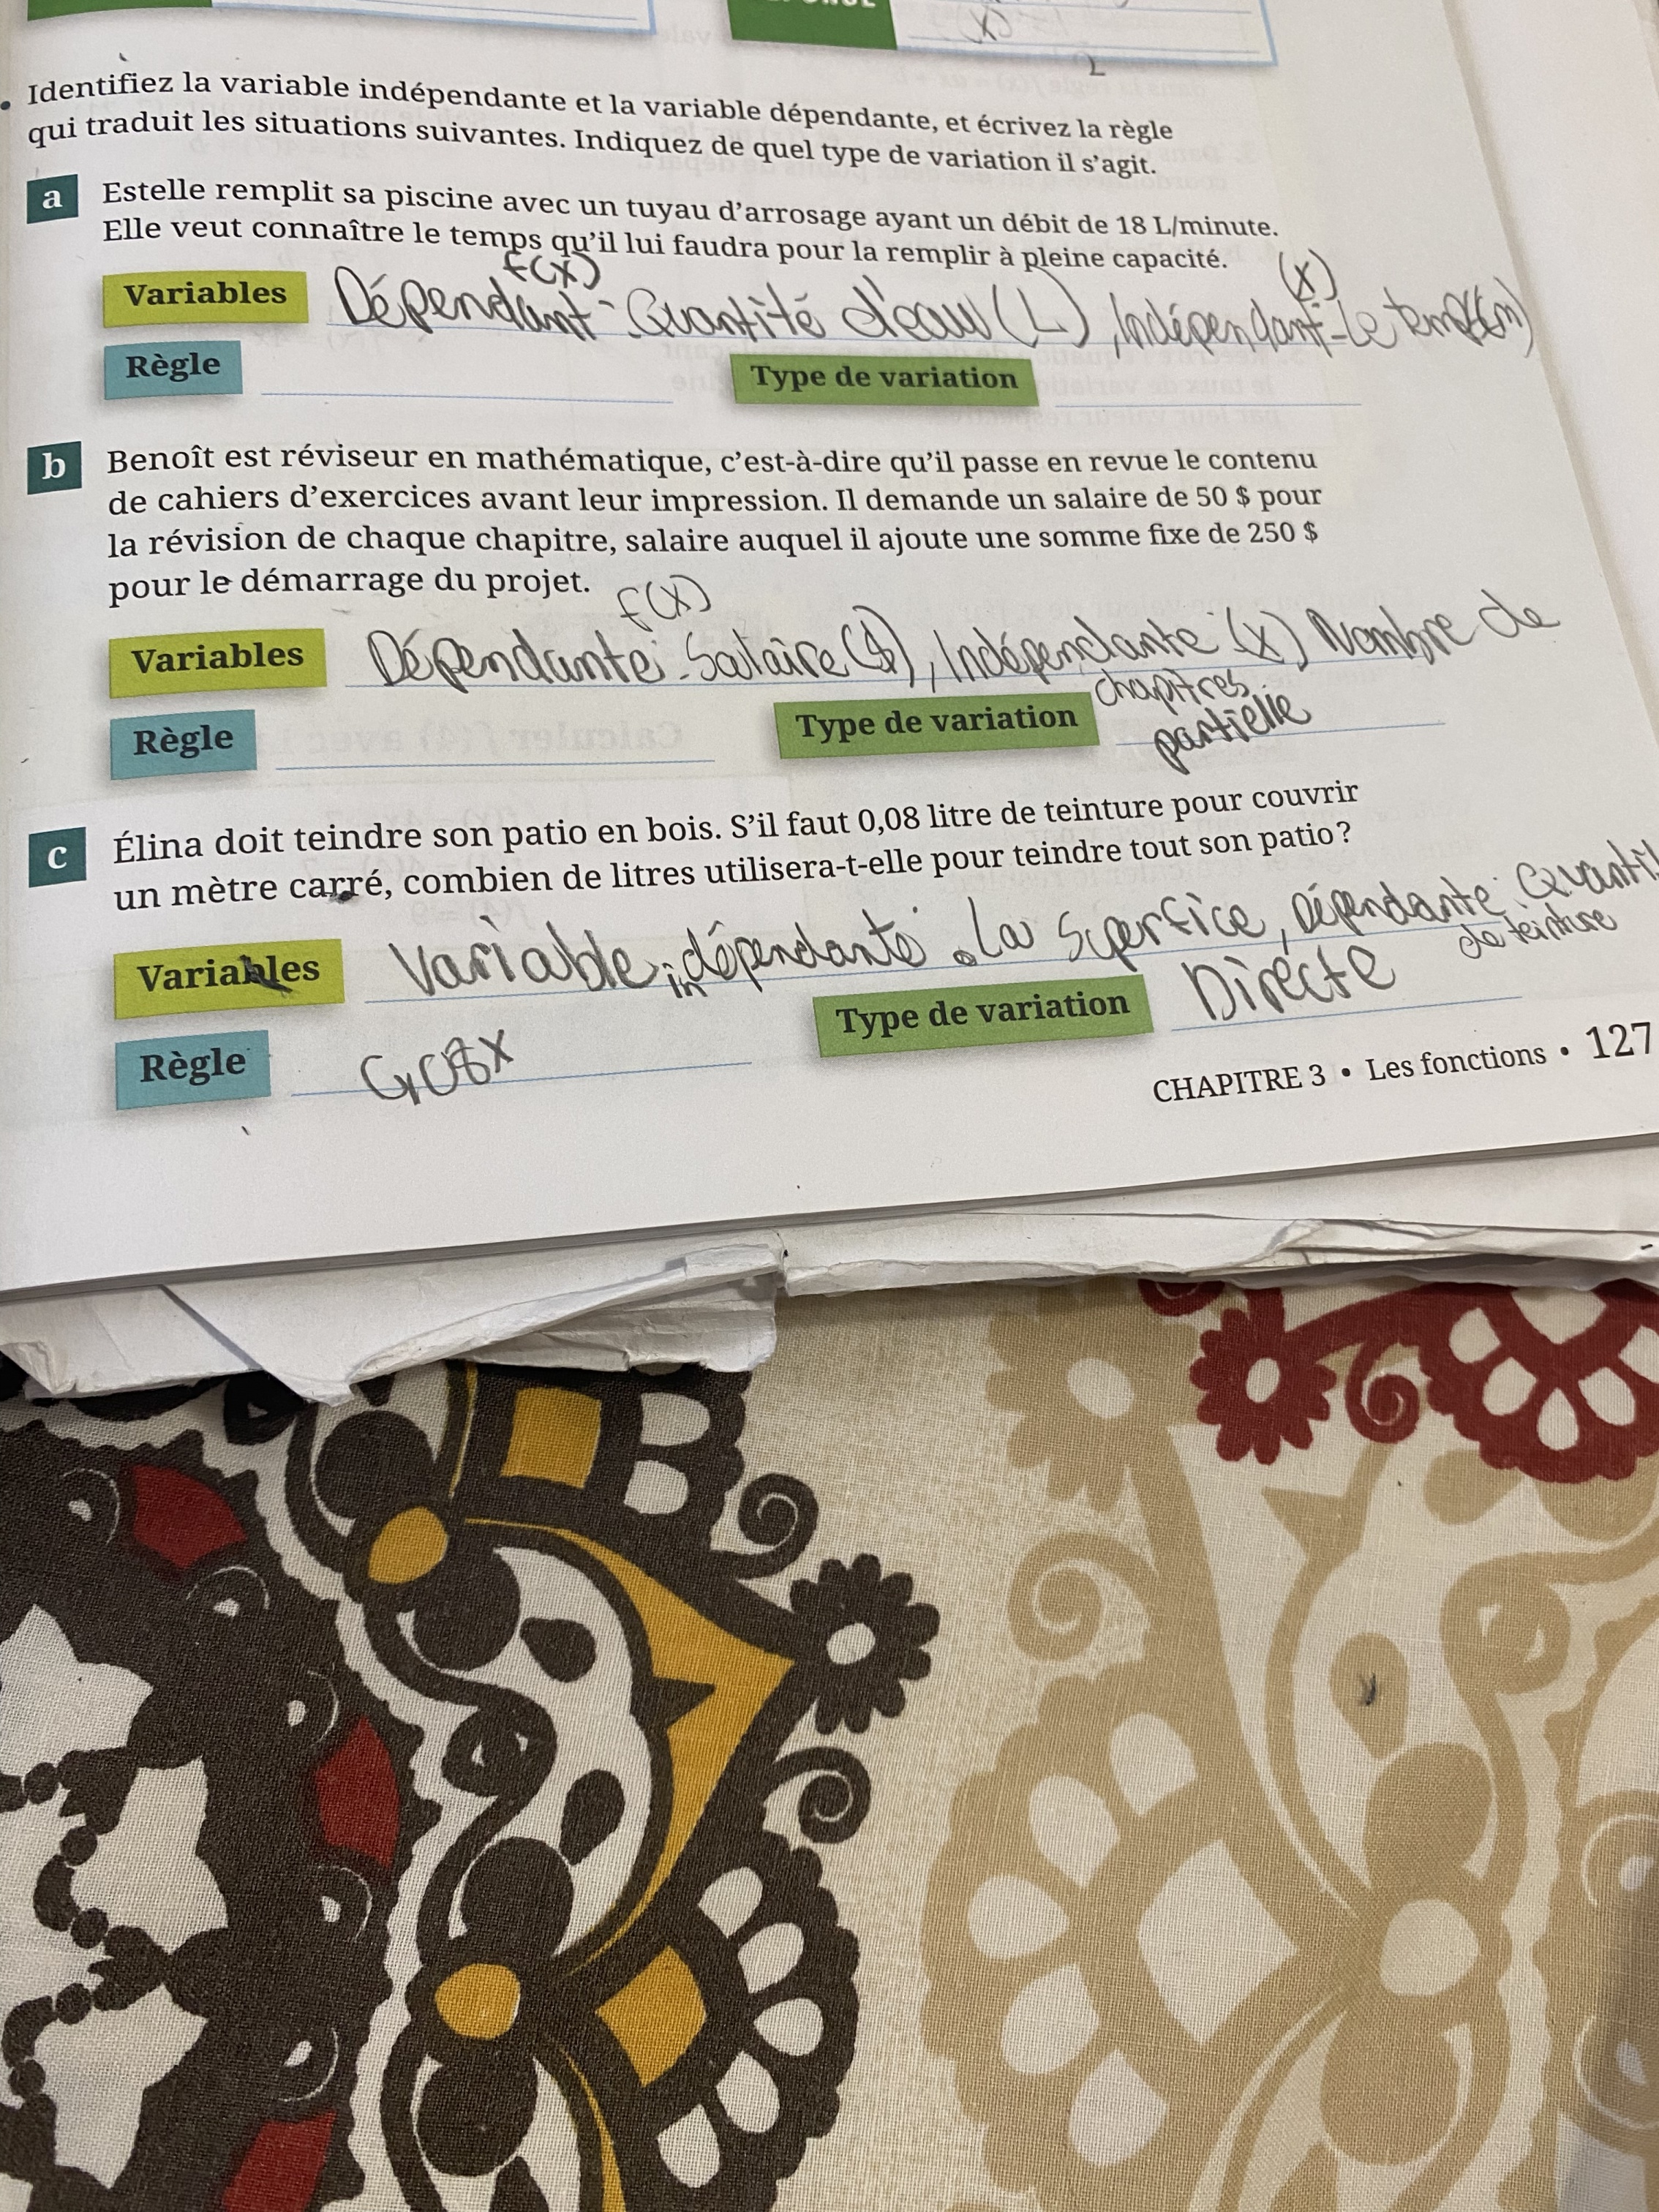 (x)
2
Identifiez la variable indépendante et la variable dépendante, et écrivez la règle
qui traduit les situations suivantes. Indiquez de quel type de variation il s'agit.
a Estelle remplit sa piscine avec un tuyau d'arrosage ayant un débit de 18 L/minute.
Elle veut connaître le temps qu'il lui faudra pour la remplir à pleine capacité.
f(x) (x)
Variables Dépendant - Quantité d'eau (L), Indépendant - Le temps(m)
Règle Type de variation
b Benoît est réviseur en mathématique, c'est-à-dire qu'il passe en revue le contenu
de cahiers d'exercices avant leur impression. Il demande un salaire de 50 $ pour
la révision de chaque chapitre, salaire auquel il ajoute une somme fixe de 250 $
pour le démarrage du projet.
f(x)
Variables Dépendante: Salaire ($), Indépendante (x) Nombre de
chapitres
Règle Type de variation partielle
c Élina doit teindre son patio en bois. S'il faut 0,08 litre de teinture pour couvrir
un mètre carré, combien de litres utilisera-t-elle pour teindre tout son patio ?
Variables Variable indépendante: La Superfice, Dépendante: Quanti
de teinture
Règle Type de variation Directe
CHAPITRE 3 • Les fonctions • 127